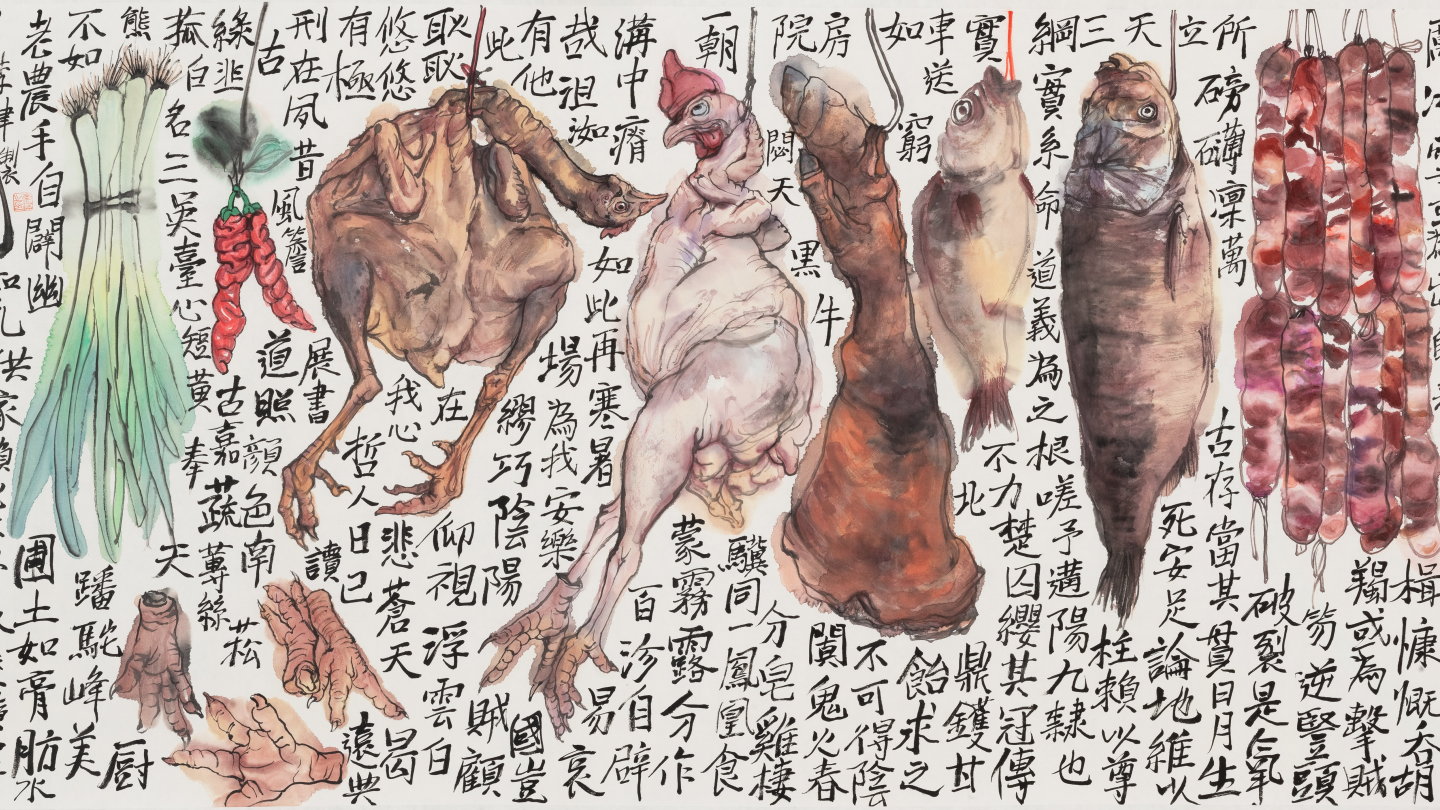 楫慷慨吞胡
羯或為擊賊
笏逆豎頭
破裂是氣
所磅礴凜萬
古存當其貫日月生
死安足論地維以
立天
柱賴以尊
三綱實系命道義為之根嗟予遘陽九隸也
實
不力楚囚纓其冠傳
車送窮北
鼎鑊甘
如
飴求之
不可得陰
房
闃鬼火春
院閟天黑牛
驥同一
分皂雞棲
鳳凰食
一朝
蒙霧露分作
溝中瘠
如此再寒暑
百沴自辟
易哀
哉沮洳
場為我安樂
國豈
有他
繆巧陰陽
賊顧
此
耿耿
在
仰視浮雲白
悠悠
我心
悲蒼天曷
有極
哲人日已遠典
刑在夙昔
風簷展書讀
古
道照顏色南
綠韭
古嘉蔬蓴絲
菰白
名三吳臺心短黃
奉天廚
熊
蹯駝峰美
不如
老農手自闢幽
圃土如膏肪水